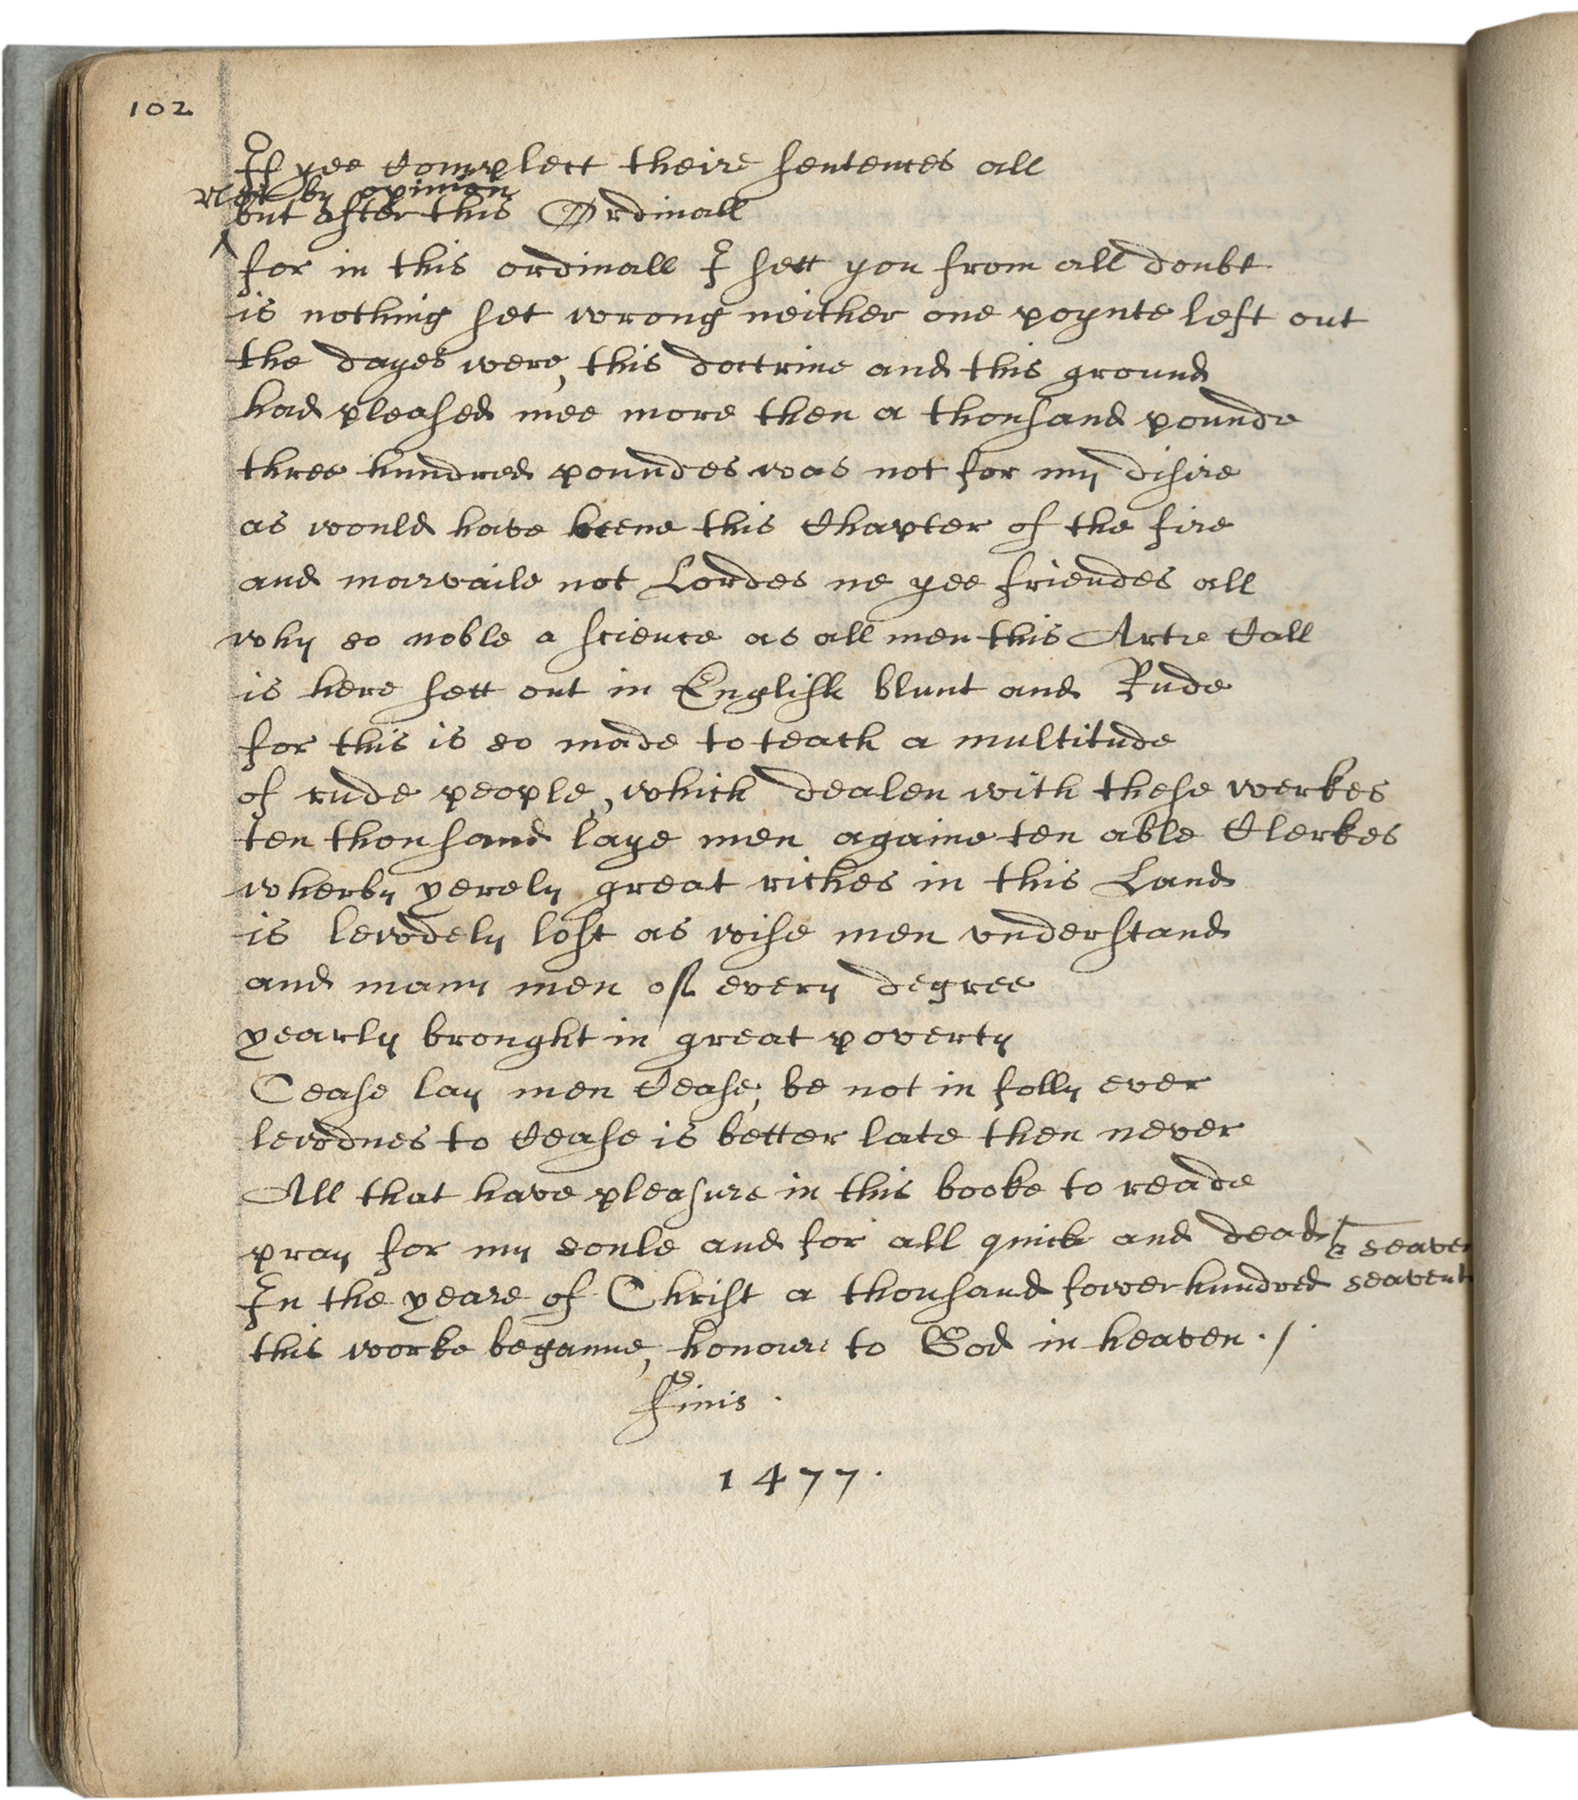 102
If yee Complect theire sentences all
Not by opinion
but after this Ordinall
for in this ordinall I sett you from all doubt
is nothing set wrong neither one poynte left out
the dayes were, this doctrine and this ground
had pleased mee more then a thousand pounde
three hundred poundes was not for my disire
as would have beene this Chapter of the fire
and marvaile not Lordes ne yee friendes all
why so noble a science as all men this Arte Call
is here sett out in English blunt and Rude
for this is so made to teach a multitude
of rude people, which dealen with these werkes
ten thousand laye men againe ten able Clerkes
wherby yerely great riches in this Land
is lewdely lost as wise men understand
and many men of every degree
yearly brought in great poverty
Cease lay men Cease, be not in folly ever
lewdnes to Cease is better late then never
All that have pleasure in this booke to reade
pray for my soule and for all quick and dead
& seaven
In the yeare of Christ a thousand fower hundred seavent
this worke beganne, honour to God in heaven ./.
Finis .
1477.